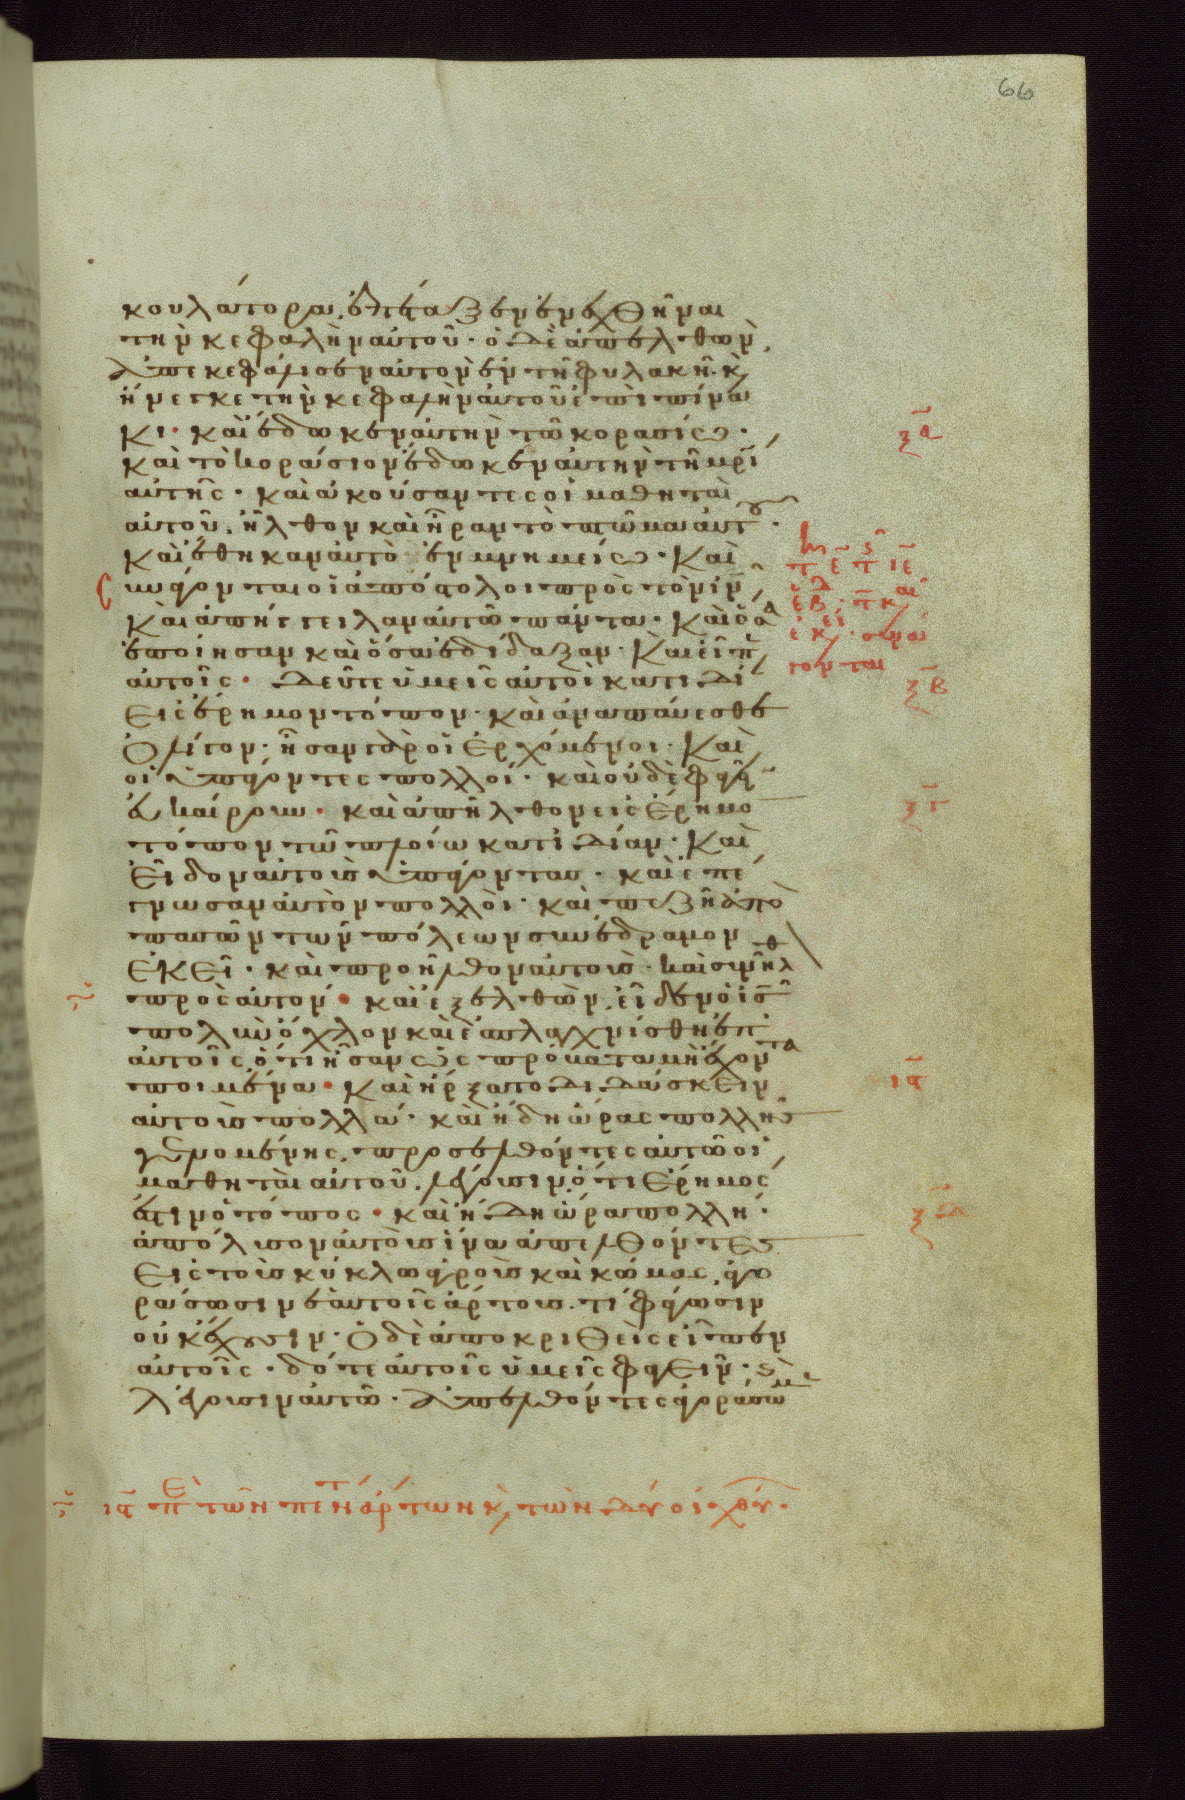 66
κουλάτορα, ἐπέταξεν ἐνεχθῆναι
τὴν κεφαλὴν αὐτοῦ· ὁ δὲ ἀπελθὼν,
ἀπεκεφάλισεν αὐτὸν ἐν τῆ φυλακῆ· κ(αὶ)
ἤνεγκε τὴν κεφαλὴν αὐτοῦ ἐπὶ πίνα
κι· καὶ ἔδωκεν αὐτὴν τῶ κορασίω·
καὶ τὸ κοράσιον ἔδωκεν αὐτὴν τῆ μρὶ
αὐτῆς· καὶ ἀκούσαντες οἱ μαθηταὶ
αὐτοῦ, ἦλθον καὶ ἦραν τὸ πτῶμα αὐτοῦ·
καὶ ἔθηκαν αὐτὸ ἐν μνημείω· Καὶ
συνάγονται οἱ ἀπόστολοι πρὸς τὸν ιν,
καὶ ἀπήγγειλαν αὐτῶ πάντα· Καὶ ὅσα
ἐποίησαν καὶ ὅσα ἐδίδαξαν· Καὶ εἶπεν
αὐτοῖς· Δεῦτε ὑμεῖς αὐτοὶ κατιδί
εἰς ἔρημον τόπον· καὶ ἀναπαύεσθε
ὀλίγον· ἦσαν γὰρ οἱ ἐρχόμενοι· Καὶ
οἱ ὑπάγοντες πολλοί· καὶ οὐδὲ φαγεῖν
εὐκαίρουν· καὶ ἀπῆλθον εἰς ἔρημο
τόπον τῶ πλοίω κατιδίαν· Καὶ
εἶδον αὐτοὺς ὑπάγοντας· καὶ ἐπέ
γνωσαν αὐτὸν πολλοὶ· καὶ πεζῆ ἀπὸ
πασῶν τῶν πόλεων συνέδραμον
ἐκεῖ· καὶ προῆλθον αὐτοὺς· καὶ συνῆλθ
πρὸς αὐτόν· καὶ ἐξελθὼν, εἶδεν ὁ ις
πολὺν ὄχλον καὶ ἐσπλαγχνίσθη ἐπ
αὐτοῖς, ὅτι ἦσαν ὡς πρόβατα μὴ ἔχοντα
ποιμένα· Καὶ ἤρξατο διδάσκειν
αὐτοὺς πολλά· καὶ ἤδη ὥρας πολλῆς
γενομένης, προσελθόντες αὐτῶ οἱ
μαθηταὶ αὐτοῦ, λέγουσιν, ὅτι ἔρημος
ἐστιν ὁ τόπος· καὶ ἤδη ὥρα πολλή·
ἀπόλυσον αὐτοὺς ἵνα ἀπελθόντες
εἰς τοὺς κύκλω ἀγροὺς καὶ κώμας, ἀγο
ράσωσιν ἑαυτοῖς ἄρτους· τί φάγωσιν
οὐκ ἔχουσιν· Ὁ δὲ ἀποκριθεὶς εἶπεν
αὐτοῖς· δότε αὐτοῖς ὑμεῖς φαγεῖν· κ(αὶ)
λέγουσιν αὐτῶ· ἀπελθόντες ἀγοράσωμεν
ξα
ξβ
ξγ
ιϛ
ξδ
ιϛ περὶ τῶν πέντε ἄρτων κ(αὶ) τῶν δύο ἰχθύ·